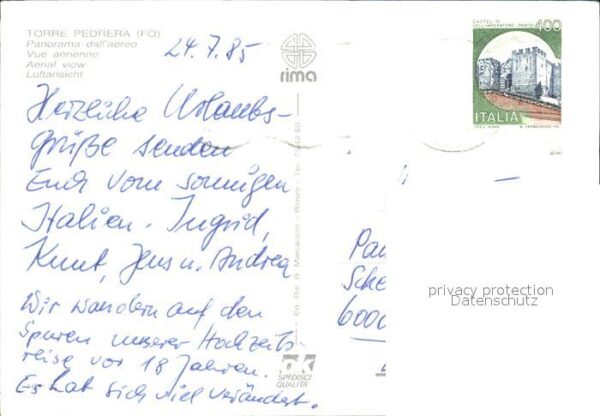 TORRE PEDRERA (FO)
Panorama dall'aereo
Vue aerienne
Aerial view
Luftansicht
24.7.85
rima
CASTELLO
DELL'IMPERATORE - PRATO
400
ITALIA
Herzliche Urlaubs-
grüße senden
Euch vom sonnigen
Italien. Ingrid,
Knut, Jens u. Andrea
Wir wandern auf den
Spuren unserer Hochzeits-
reise vor 18 Jahren.
Es hat sich viel verändert.
OK
SPEDISCI
QUALITÀ
privacy protection
Datenschutz
6000